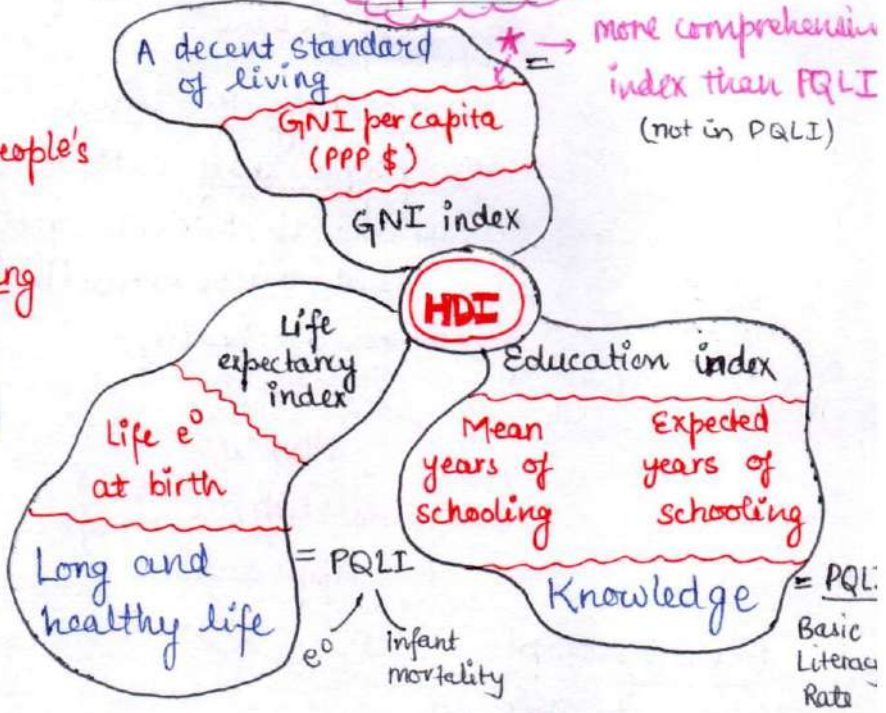 A decent standard
of living
GNI per capita
(PPP $)
GNI index
* → more comprehensiv
=
index than PQLI
(not in PQLI)
eople's
ng
HDI
Life
expectancy
index
Life e⁰
at birth
Long and
healthy life
= PQLI
e⁰
infant
mortality
Education index
Mean
years of
schooling
Expected
years of
schooling
Knowledge
= PQL
Basic
Literac
Rate